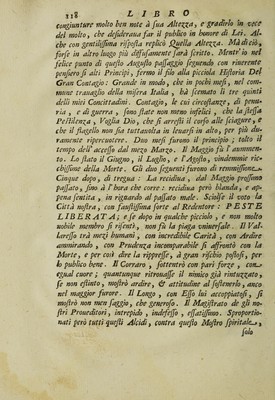 118 LIBRO
congiunture molto ben note à sua Altezza, e gradirlo in vece
del molto, che desiderava far il publico in honore di Lei. Al-
che con gentilissima risposta replicò Quella Altezza. Mà di ciò,
forse in altro luogo più diffusamente sarà scritto. Mentr'io nel
felice punto di questo Augusto passaggio seguendo con riverente
pensiero sì alti Prencipi, fermo il piè alla piccola Historia Del
Gran Contagio: Grande in modo, che in pochi mesi, nel com-
mune travaglio della misera Italia, hà scemato li tre quinti
delli miei Concittadini. Contagio, le cui circostanze, di penu-
ria, e di guerra, sino state non meno infelici, che la stessa
Pestilenza, Voglia Dio, che si arresti il corso alle sciagure, e
che il flagello non sia tuttavolta in levarsi in alto, per più du-
ramente ripercuotere. Don mesi furono il principio; tolto il
tempo dell'accesso dal mezo Marzo. Il Maggio fù l'aummen-
to. Lo stato il Giugno, il Luglio, e l'Agosto, vindemmie ric-
chissime della Morte. Gli duo seguenti furono di remissione.
Cinque dopo, di tregua: La recidiva, dal Maggio prossimo
passato, sino à l'hora che corre: recidiva però blanda, e ap-
pena sentita, in riguardo al passato male. Sciolse il voto la
Città nostra, con faustissima sorte al Redentore: PESTE
LIBERATA; e se dopo in qualche picciolo, e non molto
nobile membro si risentì, non fù la piaga universale. Il Val-
laresso trà mezi humani, con incredibile Carità, con Ardire
ammirando, con Prudenza incomparabile si affrontò con la
Morte, e per così dire la rippresse, à gran rischio postosi, per
lo publico bene. Il Corraro, sottentrò con pari forze, con
egual cuore; quantunque ritrovasse il nimico già rintuzzato,
se non estinto, mostrò ardire, & attitudine al sostenerlo, anco
nel maggior furore. Il Longo, con Esso lui accoppiatosi, si
mostrò non men saggio, che generoso. Il Magistrato de gli no-
stri Proveditori, intrepido, indefesso, assatissimo. Sproportio-
nati però tutti questi Alcidi, contra questo Mostro spiritale,
solo